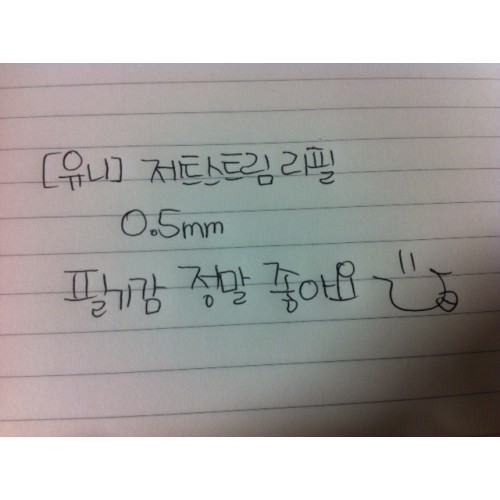 [유니] 제트스트림 리필
0.5mm
필기감 정말 좋아요